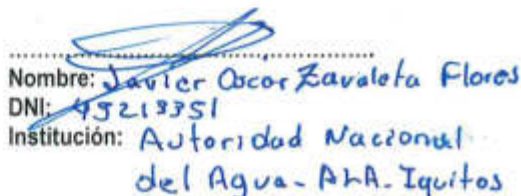 Nombre: Javier Oscar Zavaleta Flores
DNI: 45213351
Institución: Autoridad Nacional
del Agua - ALA. Iquitos